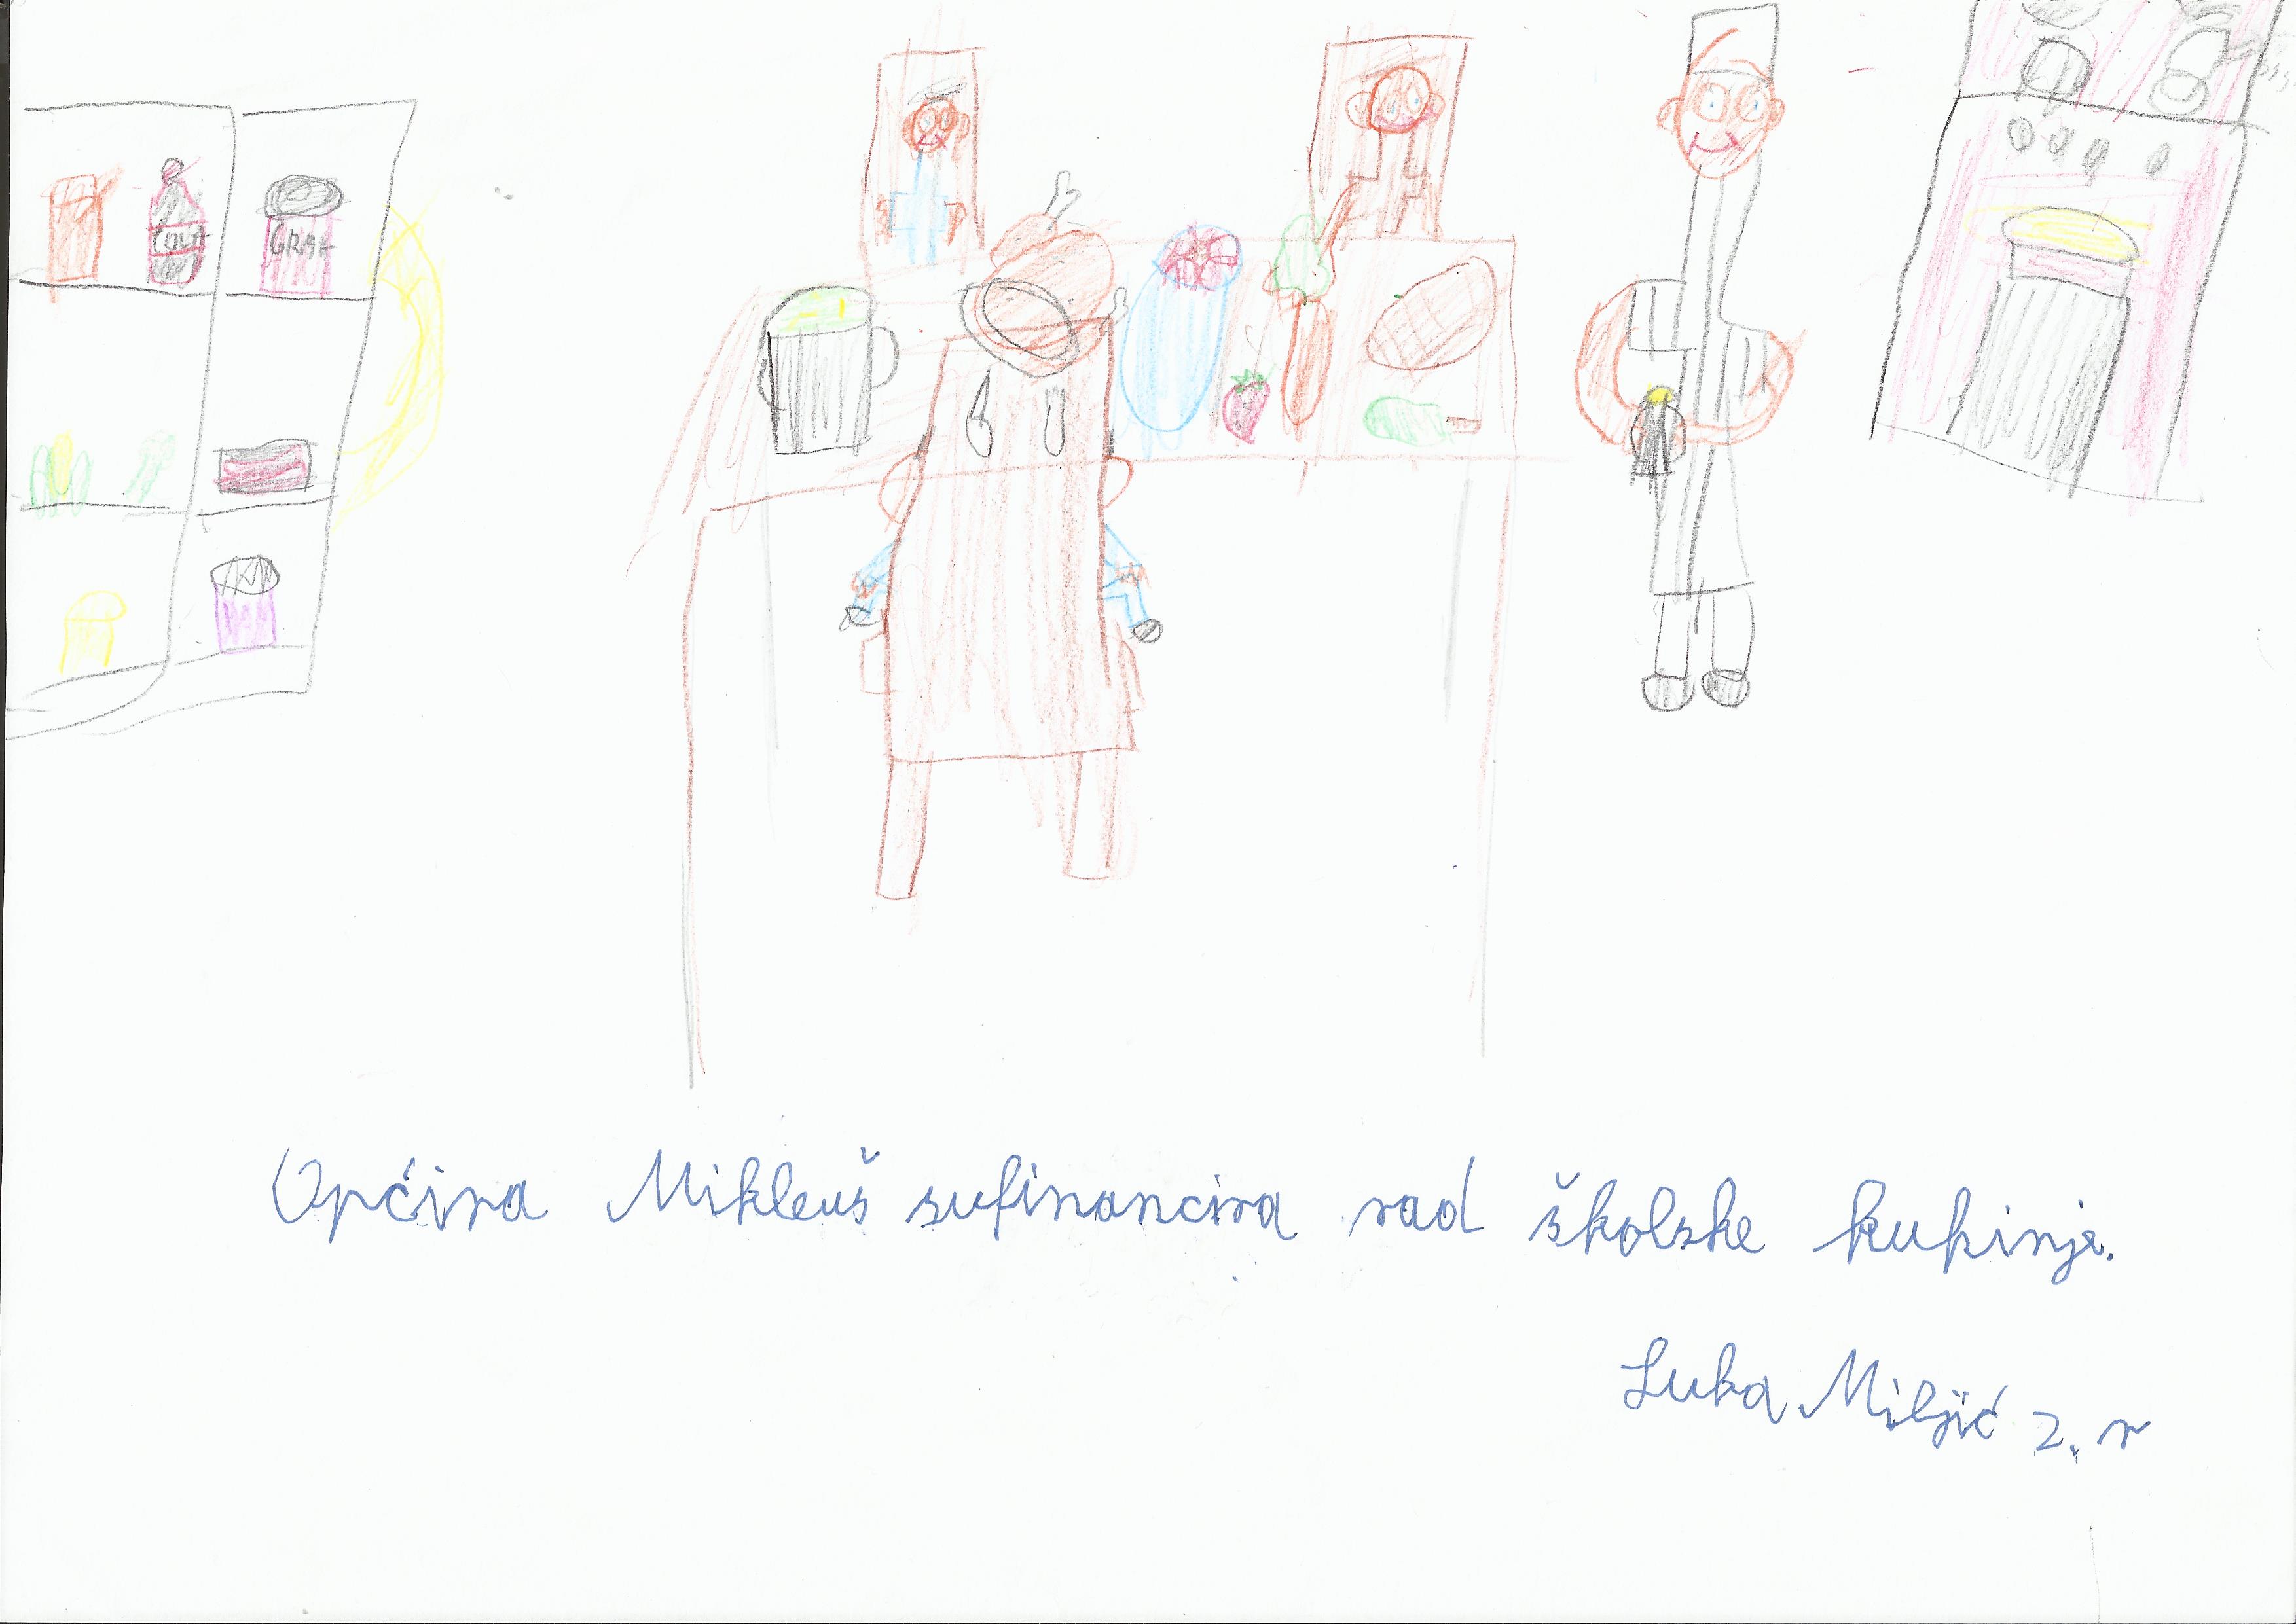 COLA
GRAH
Općina Mikleuš sufinancira rad školske kuhinje.
Luka Miljić 2. r